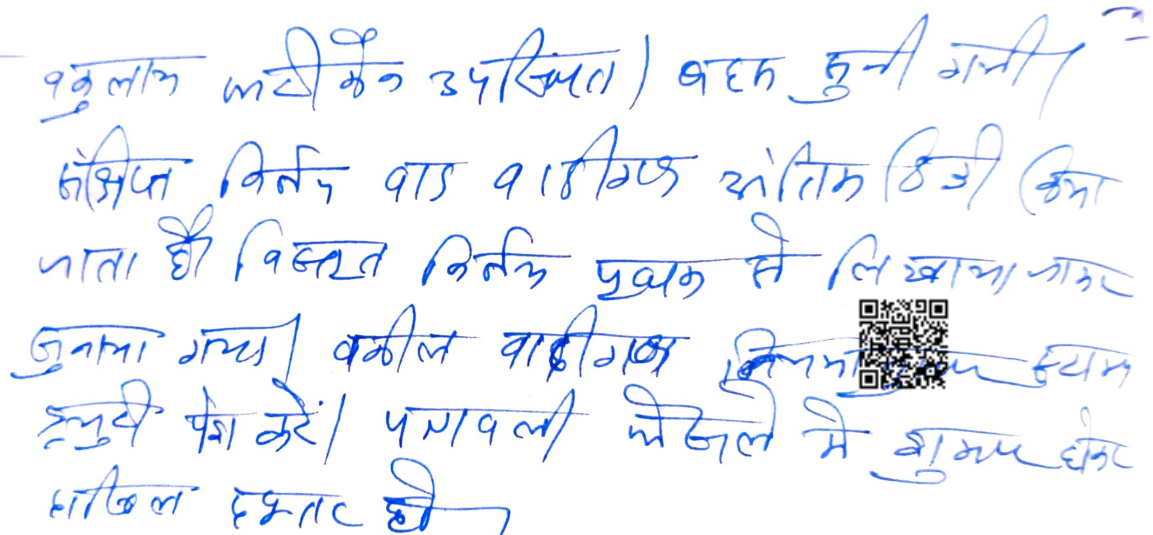 वकुलाय फरीकैन उपस्थित। बहस सुनी गयी।
संक्षिप्त निर्णय वाद वादीगण अंतिम डिक्री किया
जाता है। विस्तृत निर्णय पृथक से लिखाया जाकर
सुनाया गया। वकील वादीगण नियमानुसार स्टाम्प
ड्यूटी पेश करें। पत्रावली फैसले में शुमार होकर
दाखिल दफ्तर हो